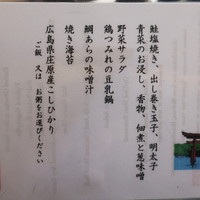 鮭塩焼き、出し巻き玉子、明太子
青菜のお浸し、香物、佃煮と葱味噌
野菜サラダ
鶏つみれの豆乳鍋
鯛あらの味噌汁
焼き海苔
広島県庄原産こしひかり
ご飯 又は お粥をお選びください